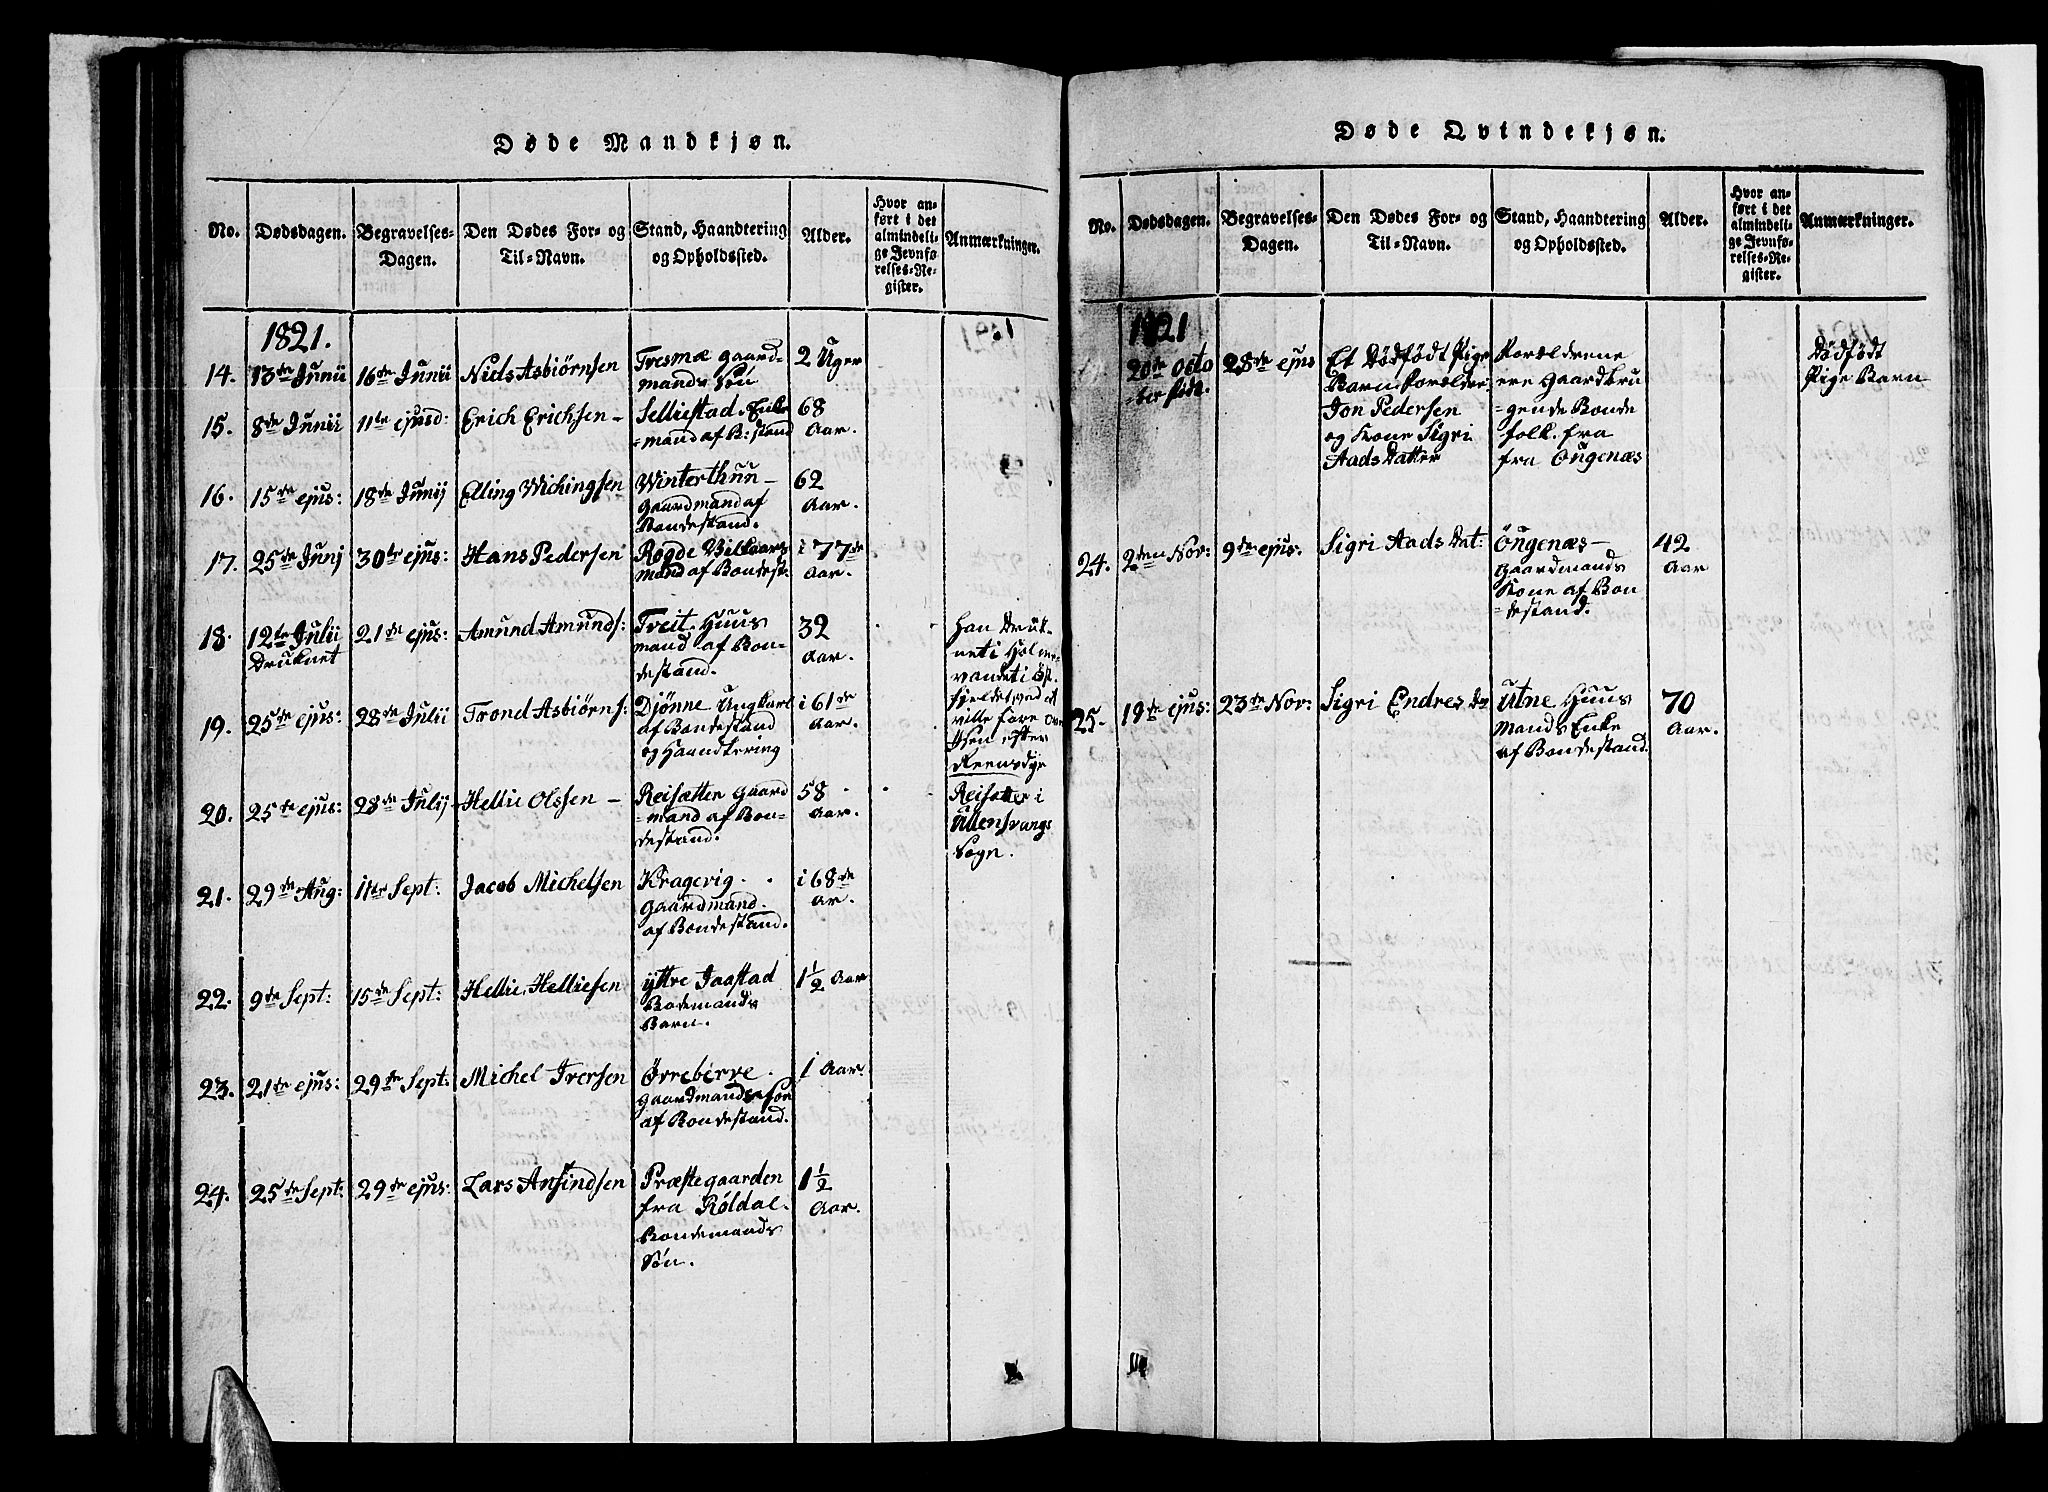 Døde Mandkjøn.
No. Dødsdagen. Begravelses-Dagen. Den Dødes For- og Til-Navn. Stand, Haandtering og Opholdssted. Alder. Hvor anført i det almindelige Jevnførelses-Register. Anmærkninger.
1821.
14. 13de Junii 16de Junii Niels Asbiörnsen Tresmæ gaard-
mands Sön 2 Uger
15. 8de Junii 11te ejusd: Erich Erichsen – Selliestad Enke
=mand af B:stand 68
Aar.
16. 15de ejus: 18de Junij Elling Wichingsen Winterthuu –
Gaardmand af
Bondestand. 62
Aar.
17. 25de Junj 30te ejus: Hans Pedersen Rogde Vilkaars
mand af Bondest: i 77de
Aar.
18. 12te Julii
Druknet 21de ejus: Amund Amunds: Treit. Huus
mand af Bon-
destand. 32
Aar.
Han Druk-
net i
vandet i Öst.
fjeldet, ved at
ville fare over
efter
Reensdyr
19. 25de ejus: 28de Julii Trond Asbiörns: Djönne Ungkarl
af Bondestand
og Haandtering i 61de
Aar.
20. 25te ejus: 28de Julij Hellie Olssen – Reisætten Gaard
=mand af Bon-
destand. 58
Aar.
Reisætter i
Ullensvangs
Sogn.
21. 29de Aug: 11te Sept: Jacob Michelsen Kragevig.
Gaardmand.
af Bondestand. i 68de
ar.
22. 9de Sept: 15de Sept: Hellie Helliesen yttre Jaastad
Bodemands
Barn. 1½ Aar
23. 21de ejus: 29de Sept: Michel Iversen
Gaardmands Søn
af Bondestand. 1 Aar.
24. 25de Sept: 29de ejus: Lars Præstegaarden
fra Röldal.
Bondemands
Sön. 1½
Aar.
Døde Qvindekjøn.
No. Dødsdagen. Begravelses-Dagen. Den Dødes For- og Til-Navn. Stand, Haandtering og Opholdssted. Alder. Hvor anført i det almindelige Jevnførelses-Register. Anmærkninger.
1821
20de Octo
=ber föde. 28de ejus Et Dödfödt Pige
Barn. Forældre
Jon Pedersen
og Kone Sigri
Aads Datter
Forældrene
ere Gaardbru
=gende Bonde
folk. fra
fra Öugenæs
Dödfödt
Pige Barn
24. 2den Nov: 9de ejus: Sigri Aads Dat: Öugenæs –
Gaardmands
Kone af Bon
=destand. 42
Aar
25. 19de ejus: 23de Nov: Sigri Endres Da Utne Huus
Mands Enke
af Bondestand. 70
Aar.